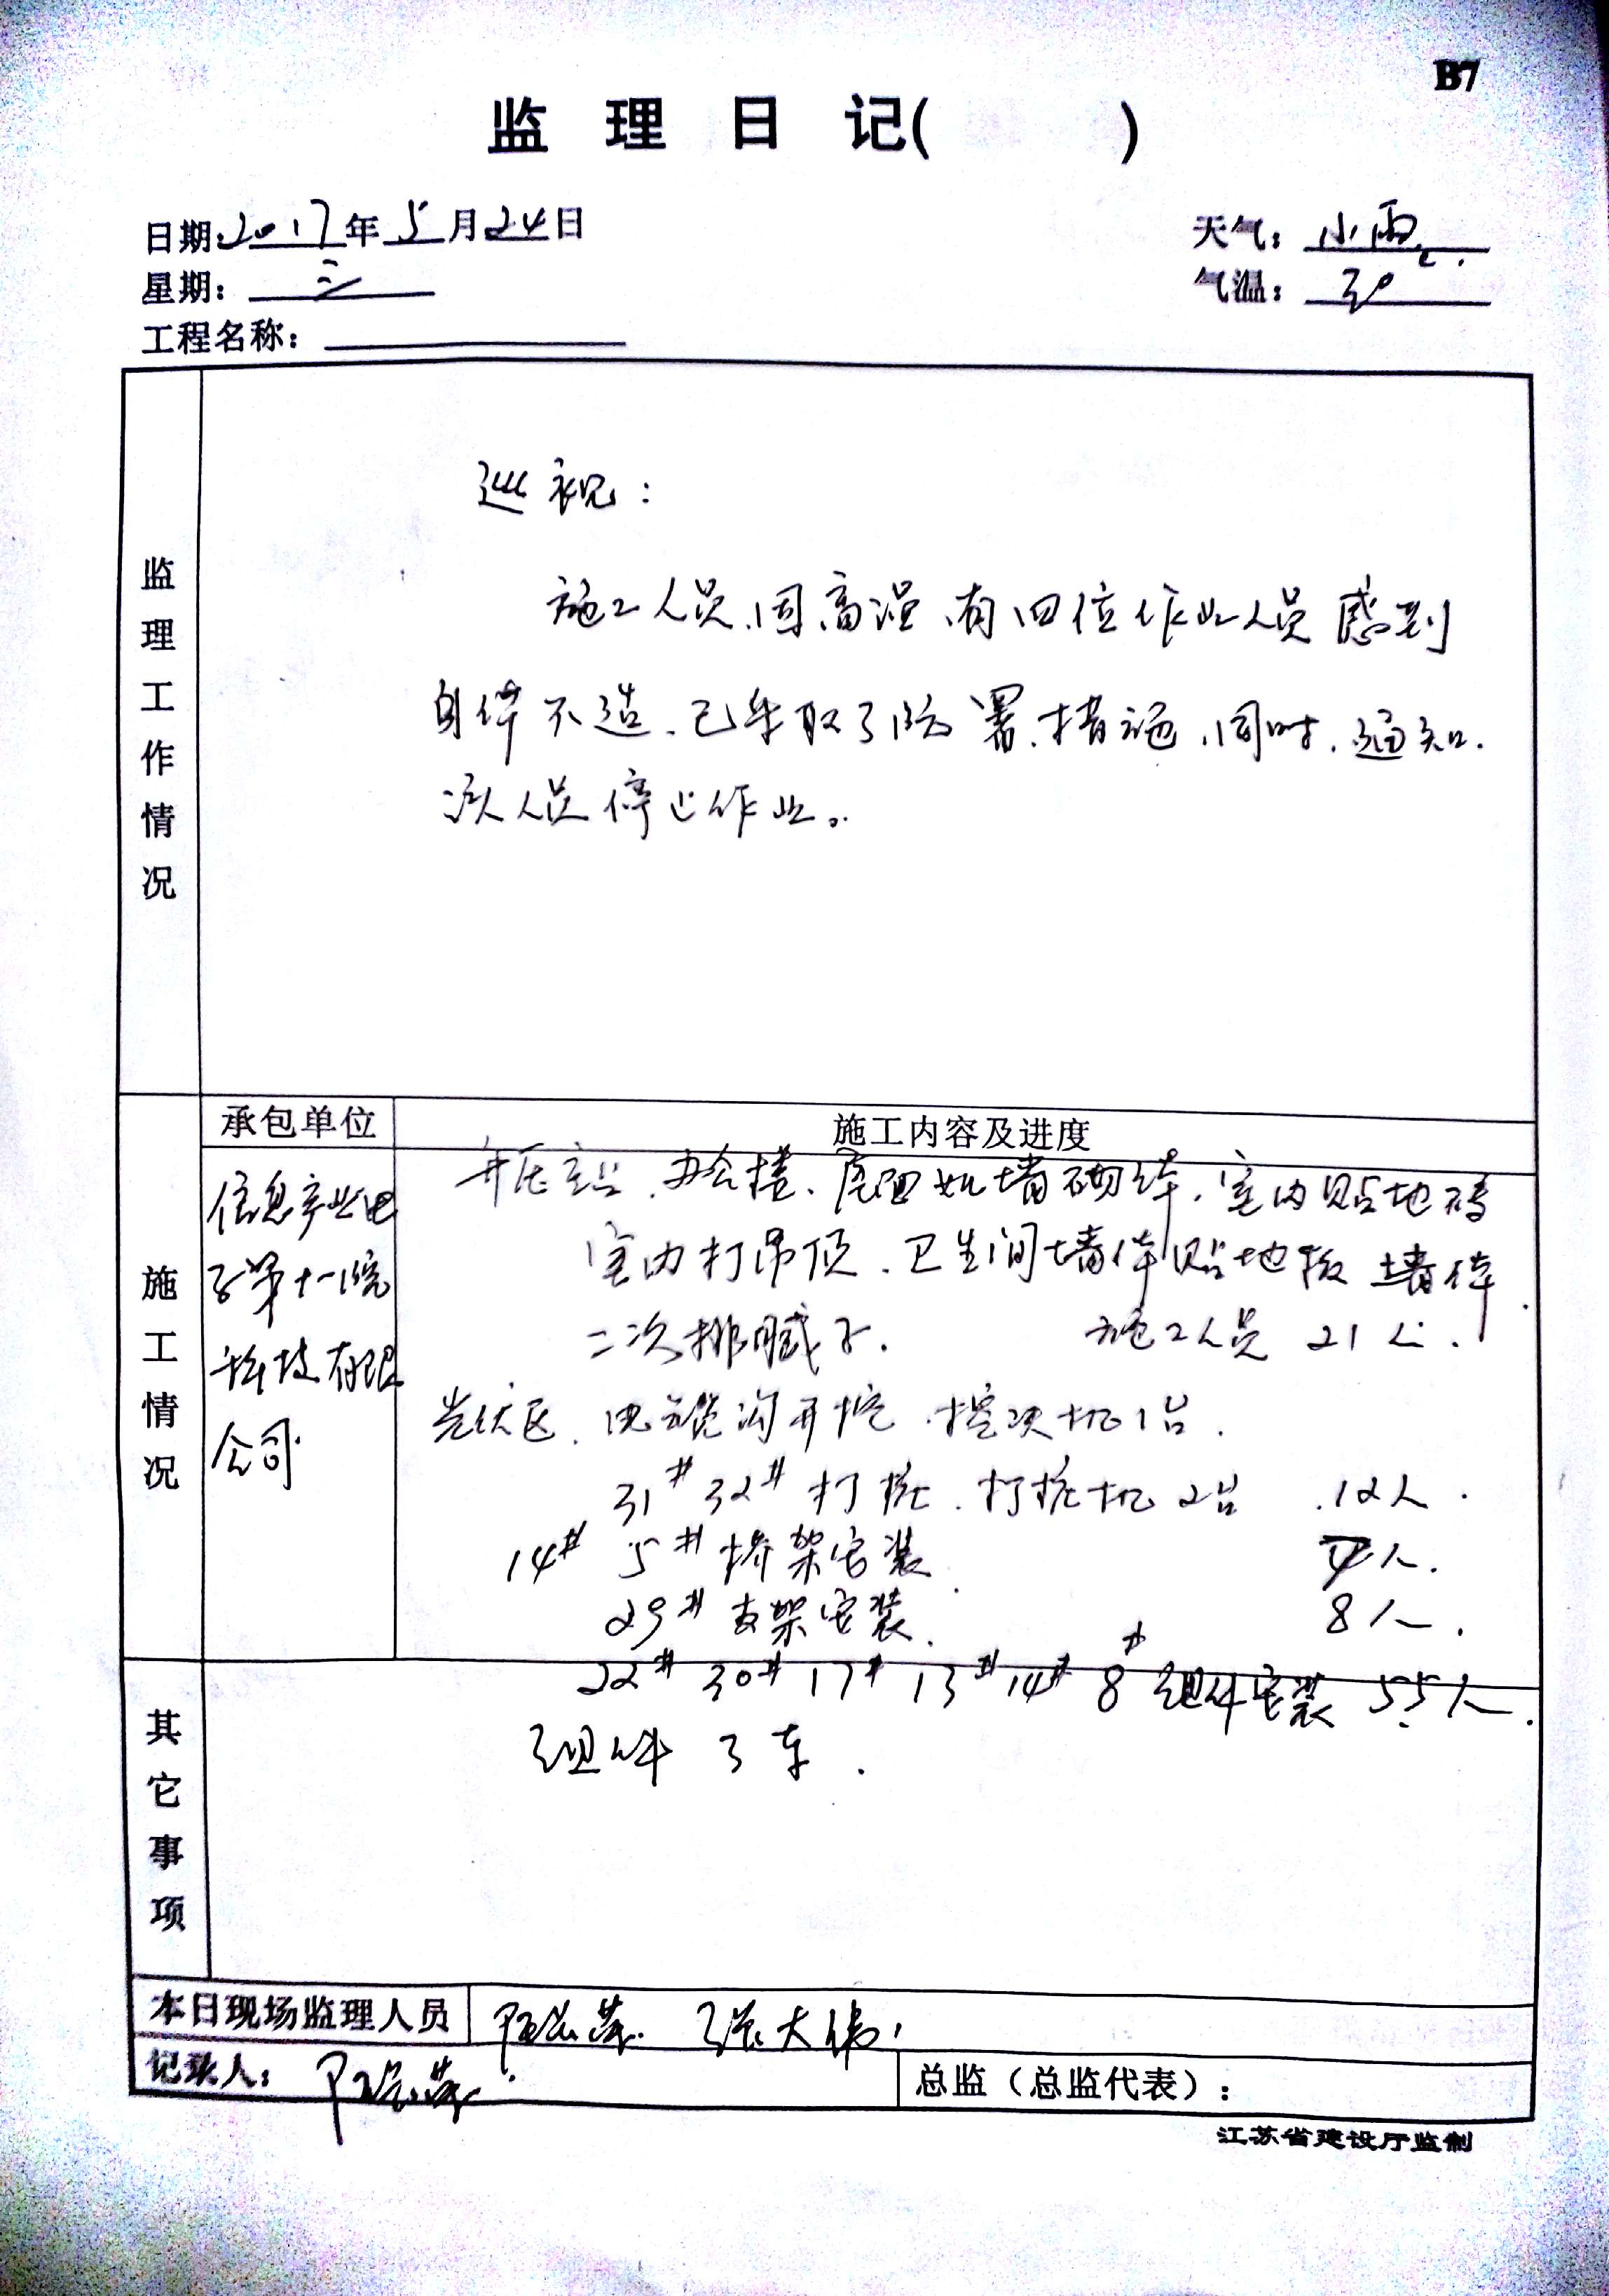 B7
监 理 日 记(　　)
日期:2017年5月24日
天气：小雨
星期：三
气温：30℃
工程名称：
监理工作情况
巡视：
施工人员,因高温,有四位作业人员感到
身体不适.已采取了防暑.措施,同时.通知.
该人员停止作业。
承包单位
施工内容及进度
施工情况
信息产业电
子第十一院
科技有限
公司
升压站.办公楼.墙砌体.室内贴地砖
室内打吊顶.卫生间墙体贴地板 墙体.
二次排腻子. 施工人员 21人.
光伏区.电缆沟开挖.挖机1台.
31# 32# 打桩.打桩机 2台 .12人.
14# 5# 桥架安装. 人.
29# 支架安装. 8人.
22# 30# 17# 13# 14# 8# 组件安装 55人.
其它事项
组件 3车.
本日现场监理人员
张大伟
记录人：
总监（总监代表）：
江苏省建设厅监制